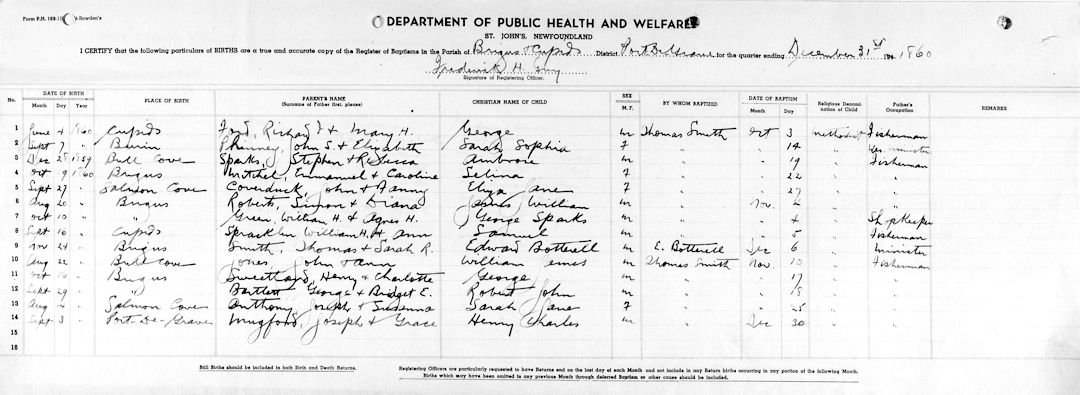 Form P.H. 169-10 Bowden's
DEPARTMENT OF PUBLIC HEALTH AND WELFARE
ST. JOHN'S, NEWFOUNDLAND
I CERTIFY that the following particulars of BIRTHS are a true and accurate copy of the Register of Baptisms in the Parish of Brigus & Cupids District Port De Grave for the quarter ending December 31st 1860
Frederick H.
Signature of Registering Officer.
No. DATE OF BIRTH Month Day Year PLACE OF BIRTH PARENT'S NAME (Surname of Father first, please) CHRISTIAN NAME OF CHILD SEX M. F. BY WHOM BAPTIZED DATE OF BAPTISM Month Day Religious Denomination of Child Father's Occupation REMARKS
1 June 4 1860 Cupids Ford, Richard & Mary H. George m Thomas Smith Oct 3 methodist Fisherman
2 Sept 7 " Burin Phinney, John S. & Elizabeth Sarah Sophia F " " 14 " minister
3 Dec 28 1859 Bull Cove Sparks, Stephen & Rebecca Ambrose m " " 19 " Fisherman
4 Oct 9 1860 Brigus Mitchel, Emmanuel & Caroline Selina F " " 22 " "
5 Sept 27 " Salmon Cove John & Fanny Eliza Jane F " " 27 " "
6 Aug 20 " Brigus Roberts, Simon & Diana James William m " Nov. 4 " "
7 Oct 10 " " Green, William H. & Agnes H. George Sparks m " " 4 " Shopkeeper
8 Sept 16 " Cupids Spracklin William H. & Ann Samuel m " " 5 " Fisherman
9 Nov 24 " Brigus Smith, Thomas & Sarah R. Edward Botterell m E. Botterell Dec 6 " minister
10 Aug 22 " Bull Cove Jones John & Ann William James m Thomas Smith Nov. 10 " Fisherman
11 Oct 16 " Brigus Sweetland, Henry & Charlotte George m " " 17 " "
12 Sept 29 " " Bartlett George & Bridget E. Robert John m " " 18 " "
13 Aug " Salmon Cove Anthony Joseph & Susanna Sarah Jane F " " 25 " "
14 Sept 3 " Port-De-Grave Mugford, Joseph & Grace Henry Charles m " Dec 30 " "
15
16
Still Births should be included in both Birth and Death Returns.
Registering Officers are particularly requested to have Returns end on the last day of each Month and not include in any Return births occurring in any portion of the following Month.
Births which may have been omitted in any previous Month through deferred Baptism or other cause should be included.